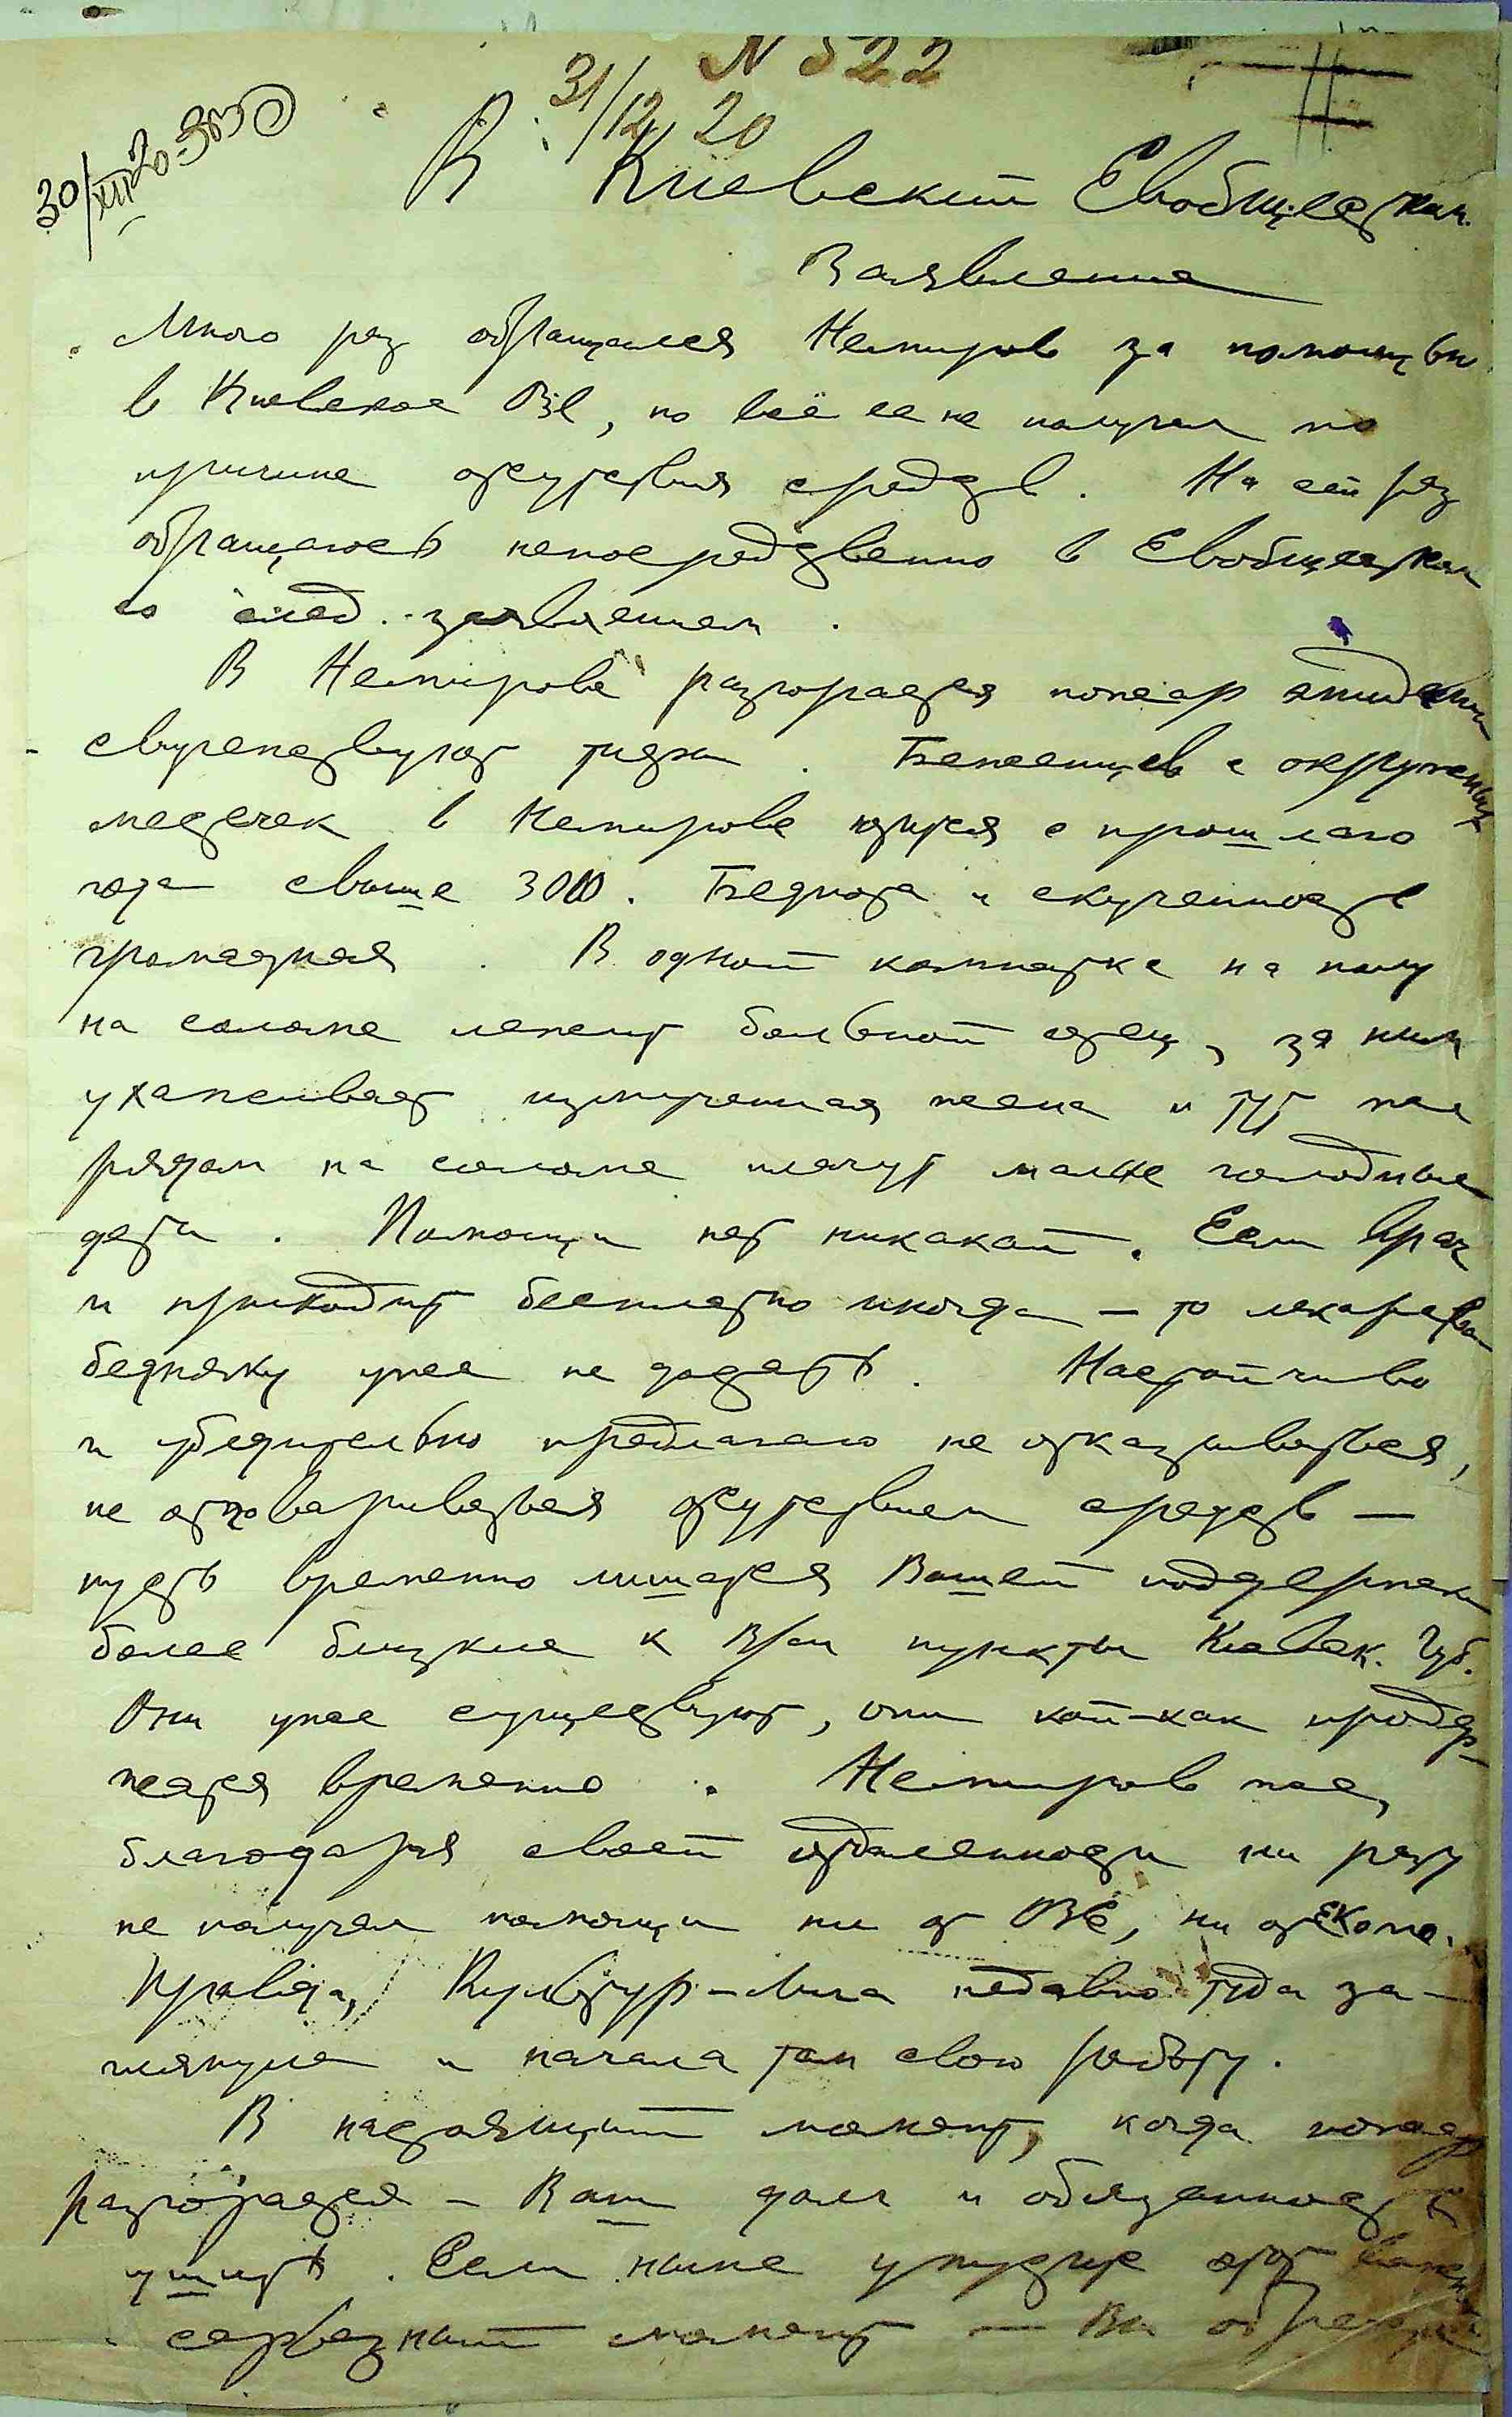 N 522
31/12 20
30/XII 20
В Киевский Евобщестком.
Заявление
Много раз обращался Немиров за помощью
в Киевское ОЗЕ, но всё ее не получал по
причине отсутствия средств. На сей раз
обращаюсь непосредственно в Евобщестком
со след. заявлением.
В Немирове разгорается пожар эпидемии
свирепствует тиф. Беженцев с окружных
местечек в Немирове ютится с прошлого
года свыше 3000. Беднота и скученность
громадная. В одной комнатке на полу
на соломе лежит больной отец, за ним
ухаживает измученная жена и тут же
рядом на соломе плачут малые голодные
дети. Помощи нет никакой. Если врач
и приходит бесплатно иногда — то лекарства
бедняку уже не достать. Настойчиво
и убедительно предлагаю не отказываться,
не отговариваться отсутствием средств —
пусть временно лишатся Вашей поддержки
более близкие к Вам пункты Киевск. Губ.
Они уже существуют, они кой-как продер-
жатся временно. Немиров же,
благодаря своей отдаленности ни разу
не получал помощи ни от ОЗЕ, ни от Екопо.
Правда, Культур-Лига недавно туда за-
глянула и начала там свою работу.
В настоящий момент, когда пожар
разгорается — Ваш долг и обязанность
тушить. Если ныне упустите этот
серьезный момент — Вы